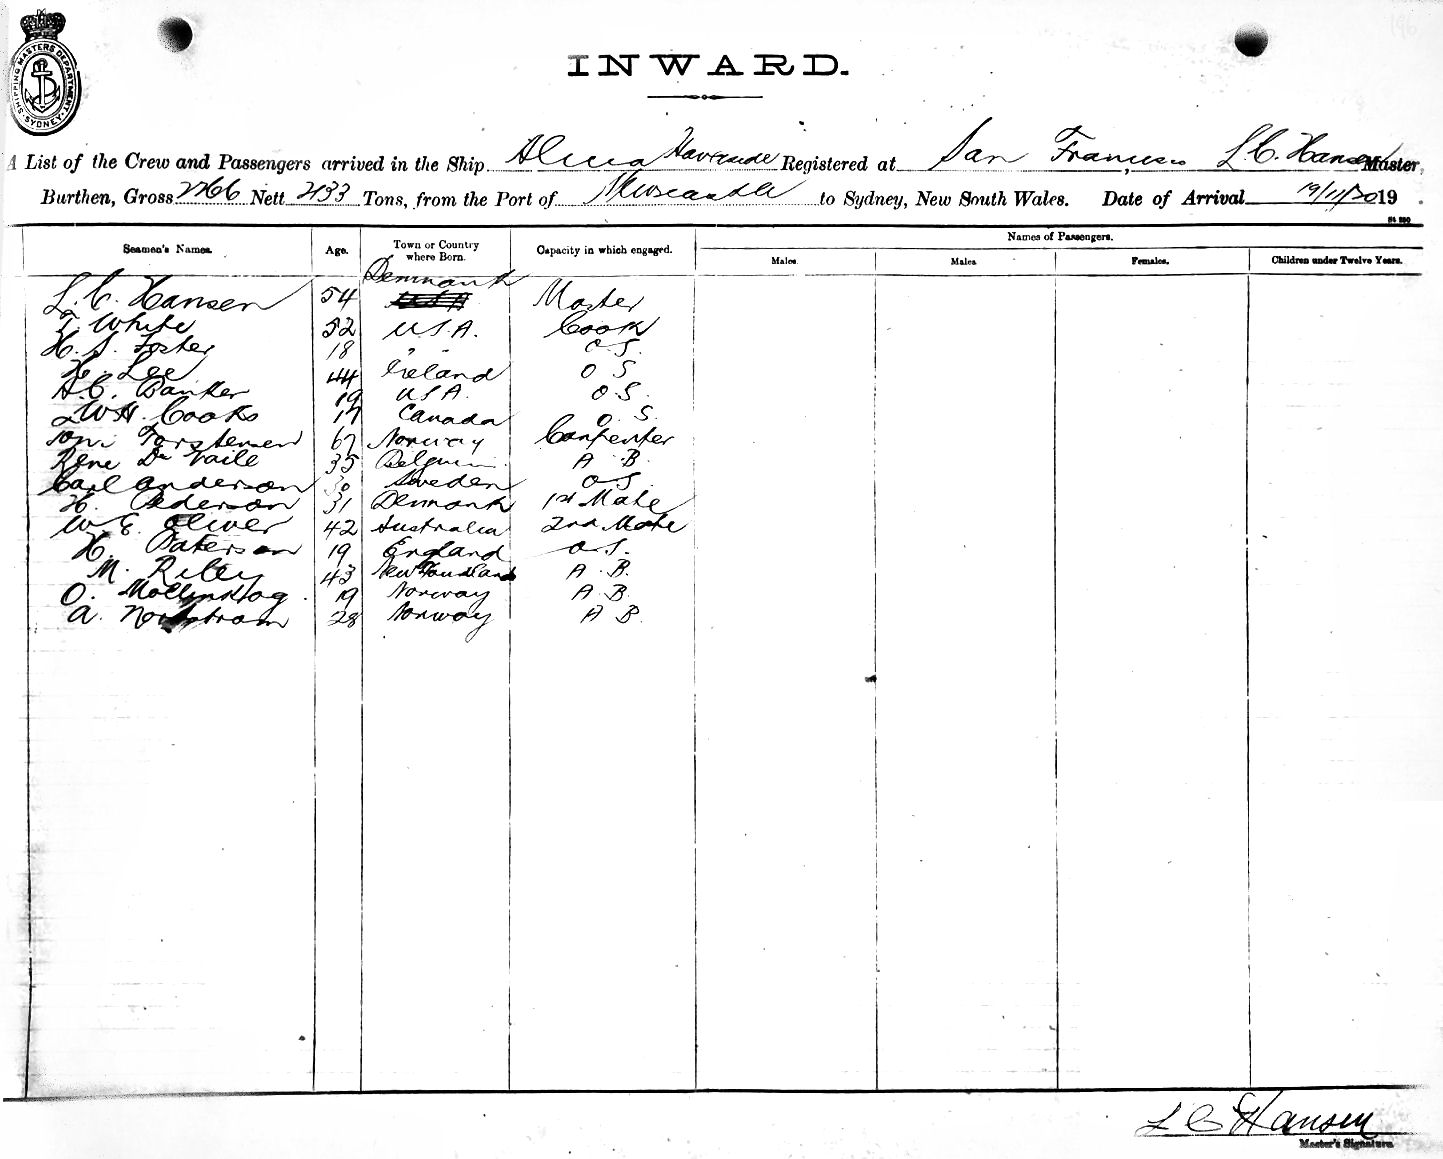 196
SHIPPING MASTERS DEPARTMENT SYDNEY
INWARD.
A List of the Crew and Passengers arrived in the Ship Alicia Haviside Registered at San Francisco, L.C. Hansen Master,
Burthen, Gross Nett 433 Tons, from the Port of Newcastle to Sydney, New South Wales. Date of Arrival 19/11/20 19
Names of Passengers.
Seamen's Names. Age. Town or Country where Born. Capacity in which engaged. Males. Males. Females. Children under Twelve Years.
L. C. Hansen 54 Denmark Master
T. White 52 U.S.A. Cook
H. S. Foster 18 " " O.S.
H. Lee 44 Ireland O S
A.C. Banker 19 U S A. O S.
W H. Cooks 17 Canada O. S.
Torstensen 67 Norway Carpenter
Rene De Vaile 35 Belgium A B
Carl Anderson 30 Sweden O S.
H. Pederson 31 Denmark 1st Mate
W E. Oliver 42 Australia 2nd Mate
H. Paterson 19 England O.S.
M. Riley 43 Newfoundland A B.
O. Mollinhog 19 Norway A B.
A. Nordstrom 28 Norway A B
L C Hansen
Master's Signature.